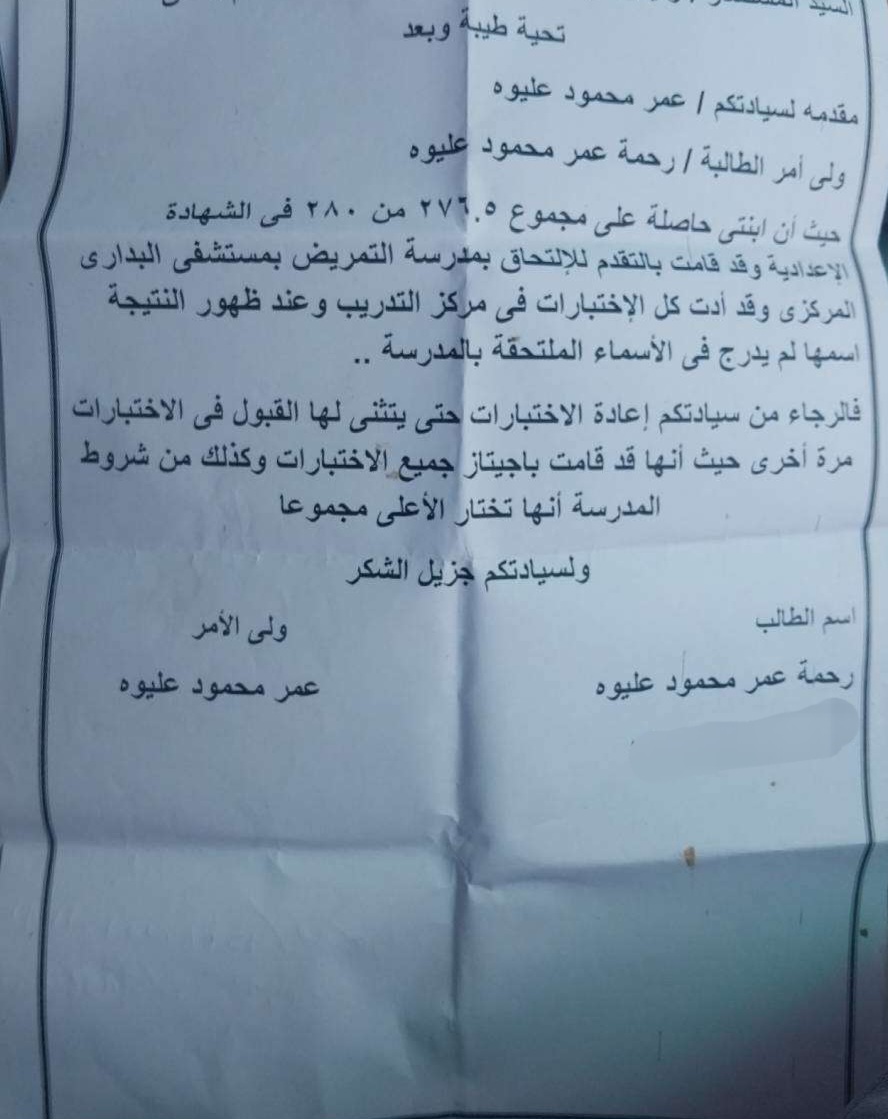 السيد
تحية طيبة وبعد
مقدمه لسيادتكم / عمر محمود عليوه
ولى أمر الطالبة / رحمة عمر محمود عليوه
حيث أن ابنتى حاصلة على مجموع ٢٧٦.٥ من ٢٨٠ فى الشهادة
الإعدادية وقد قامت بالتقدم للإلتحاق بمدرسة التمريض بمستشفى البدارى
المركزى وقد أدت كل الإختبارات فى مركز التدريب وعند ظهور النتيجة
اسمها لم يدرج فى الأسماء الملتحقة بالمدرسة ..
فالرجاء من سيادتكم إعادة الاختبارات حتى يتثنى لها القبول فى الاختبارات
مرة أخرى حيث أنها قد قامت باجيتاز جميع الاختبارات وكذلك من شروط
المدرسة أنها تختار الأعلى مجموعا
ولسيادتكم جزيل الشكر
اسم الطالب
ولى الأمر
رحمة عمر محمود عليوه
عمر محمود عليوه